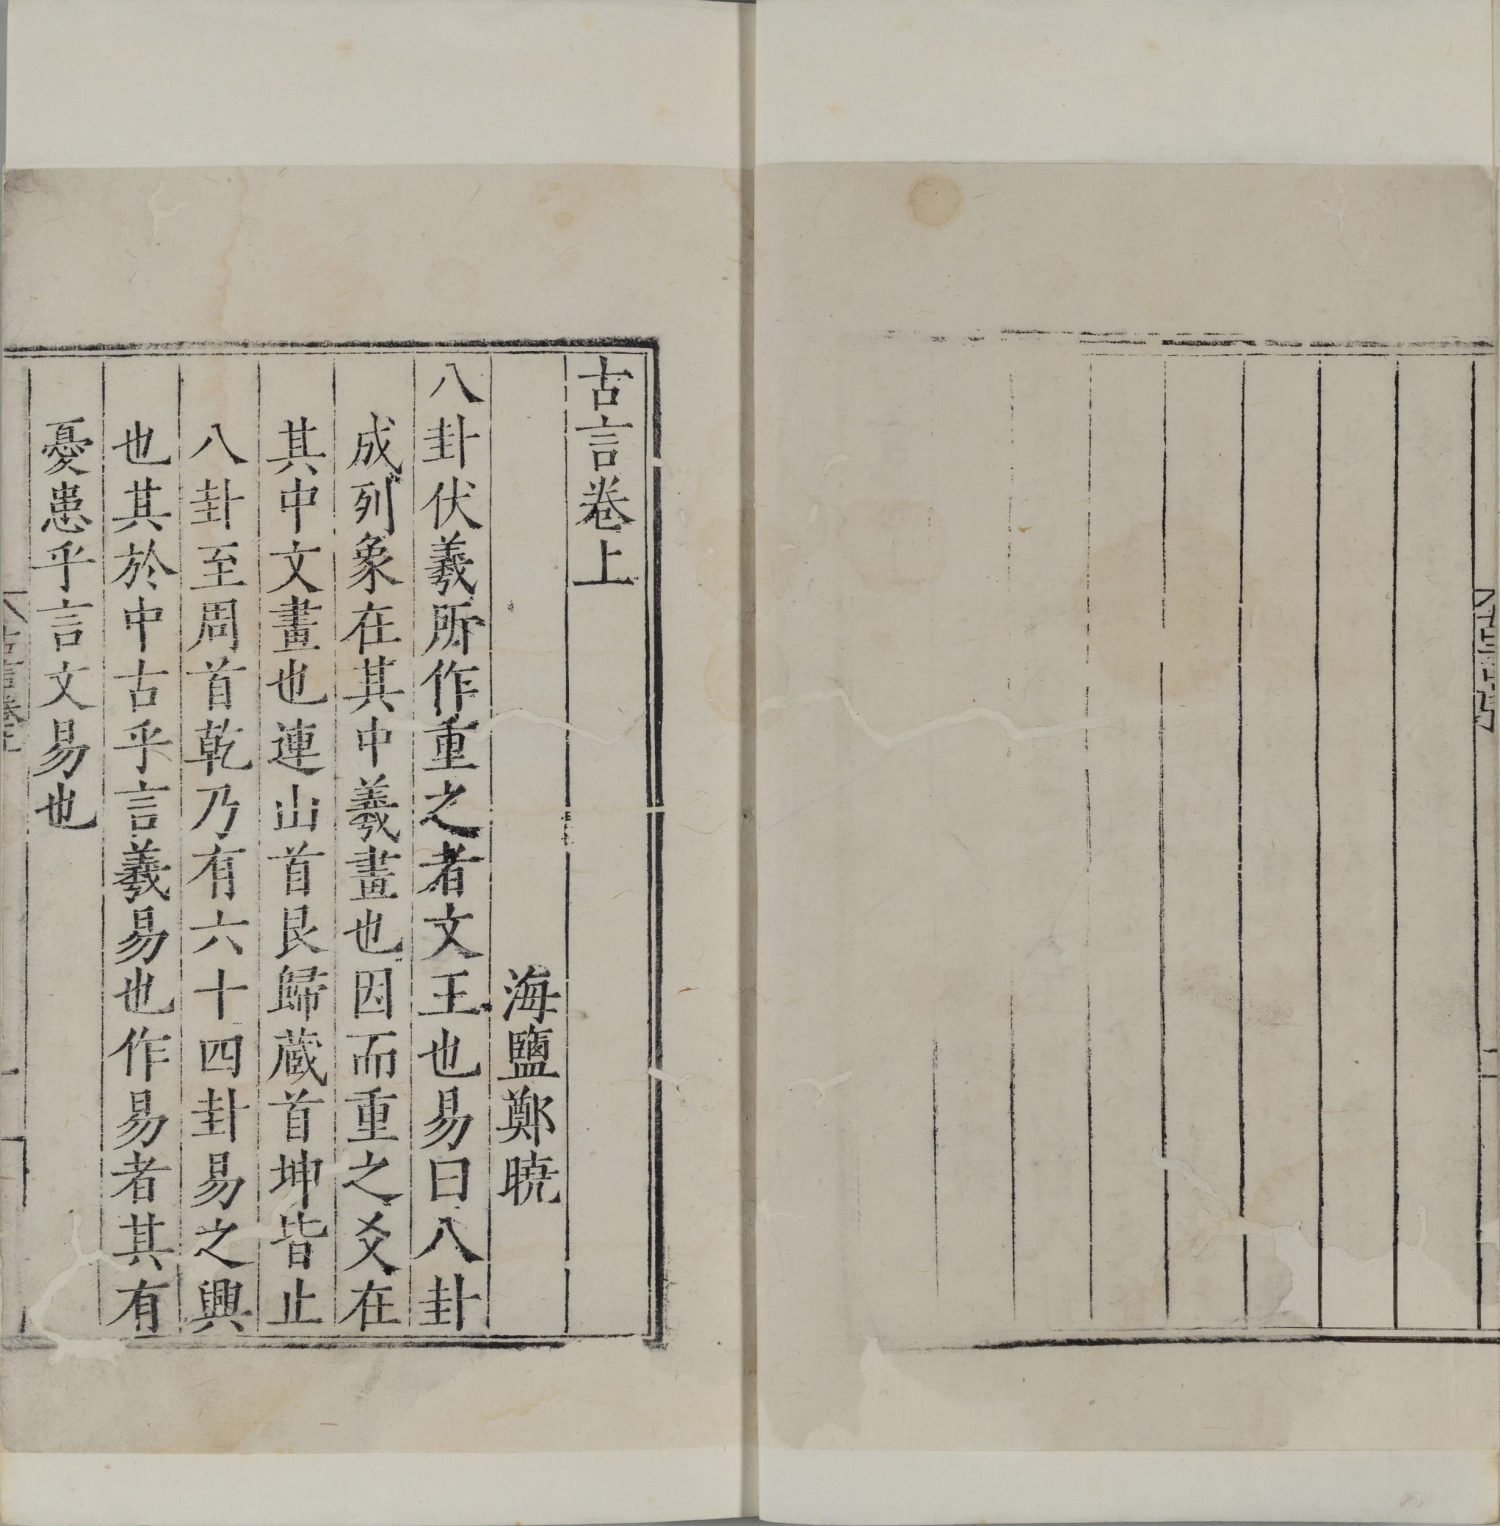 古言卷上
海鹽鄭曉
八卦伏羲所作重之者文王也易曰八卦
成列象在其中羲畫也因而重之爻在
其中文畫也連山首艮歸藏首坤皆止
八卦至周首乾乃有六十四卦易之興
也其於中古乎言羲易也作易者其有
憂患乎言文易也